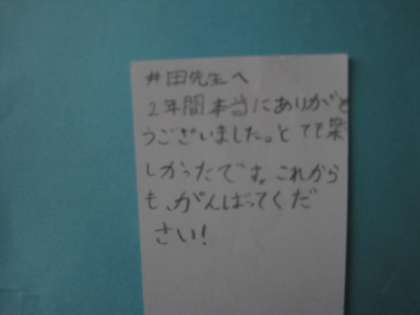 井田先生へ
2年間本当にありがと
うございました。とても楽
しかったです。これから
も、がんばってくだ
さい！